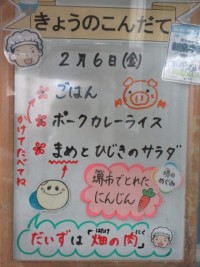 きょうのこんだて
2月6日(金)
ごはん
ポークカレーライス
まめとひじきのサラダ
かけてたべてね
堺のめぐみ
堺市でとれた
にんじん
だいずは「畑の肉」
はたけ にく